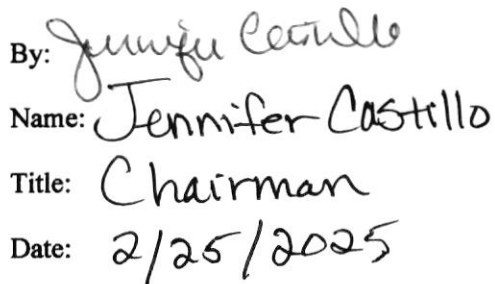 By: Jennifer Castillo
Name: Jennifer Castillo
Title: Chairman
Date: 2/25/2025